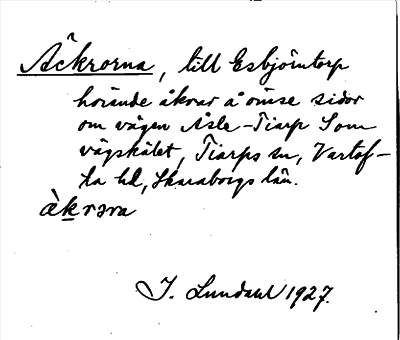 Äckrorna, till Esbjörntorp
hörande åkrar å ömse sidor
om vägen Åsle-Tiarp som
vägskälet, Tiarps sn, Vartof-
ta hd, Skaraborgs län.
àkrəra
I. Lundahl 1927.